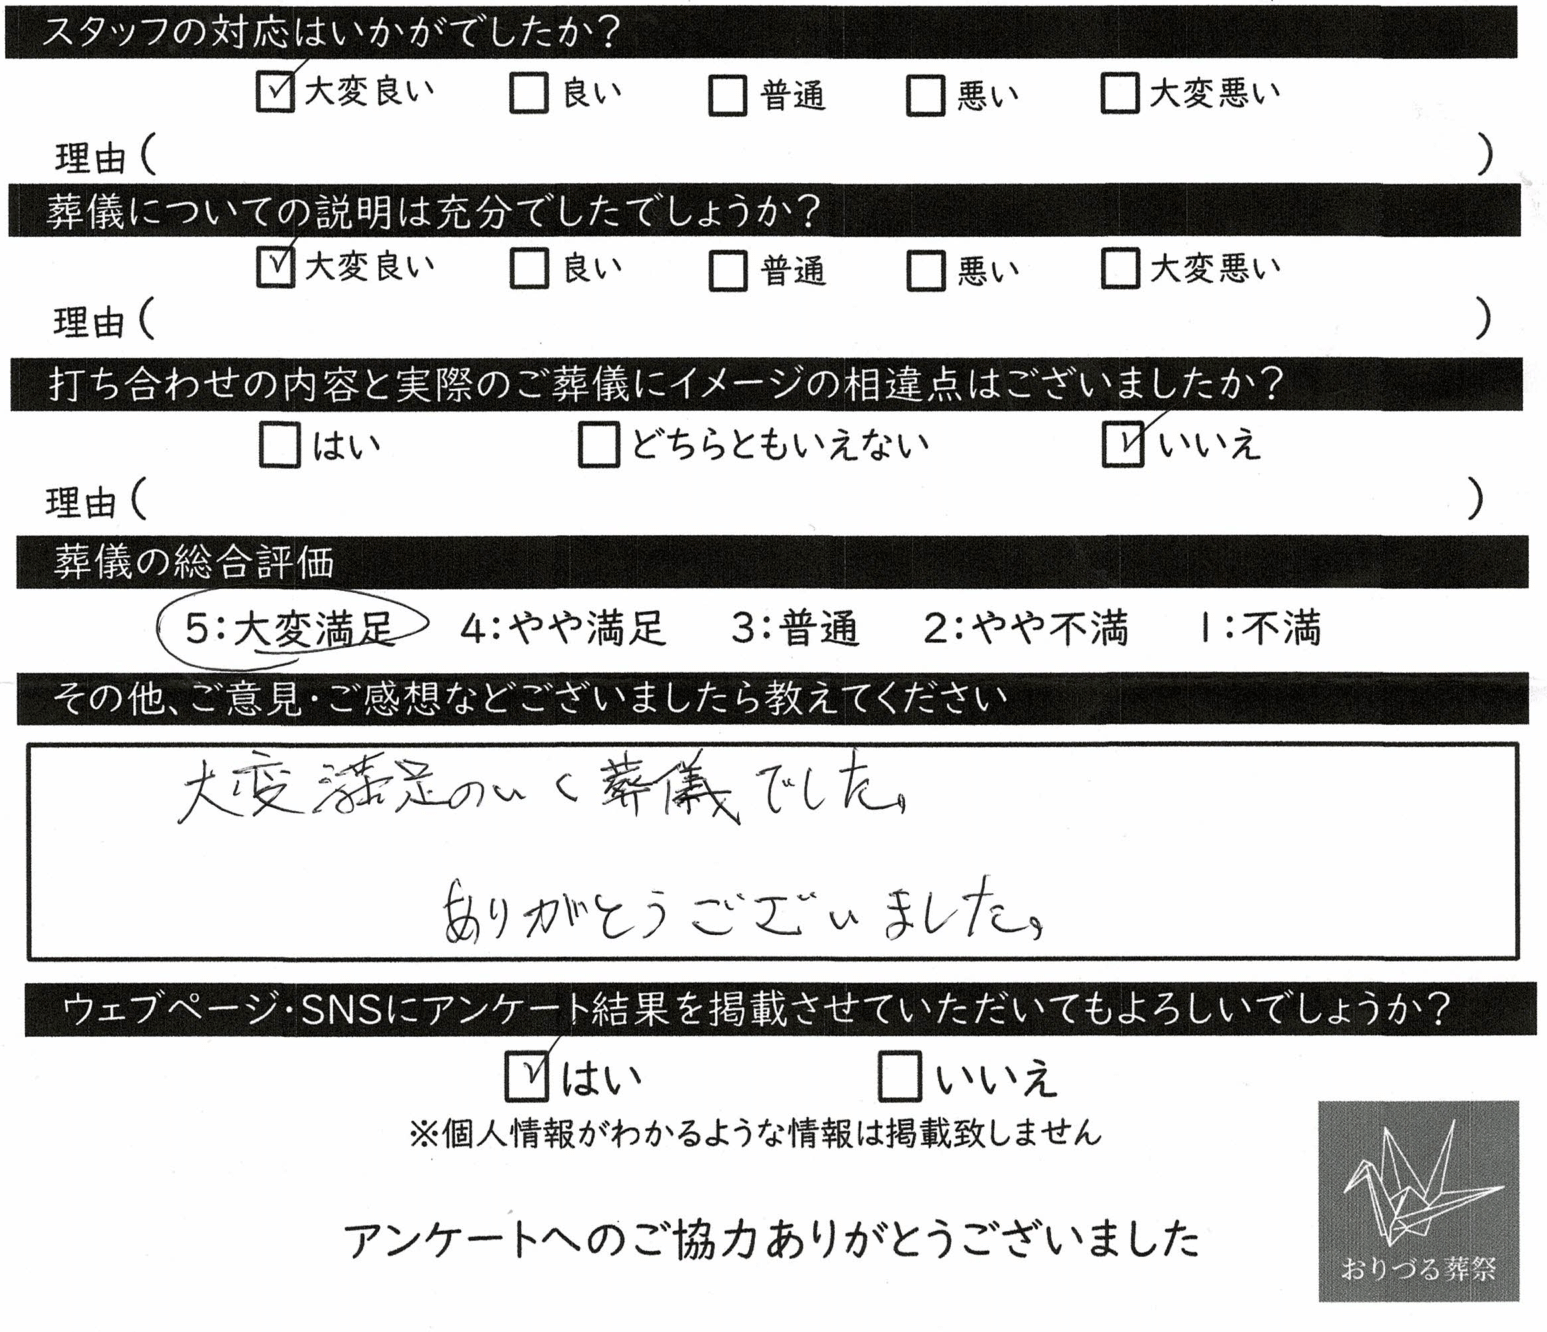 スタッフの対応はいかがでしたか?
☑大変良い □良い □普通 □悪い □大変悪い
理由( )
葬儀についての説明は充分でしたでしょうか?
☑大変良い □良い □普通 □悪い □大変悪い
理由( )
打ち合わせの内容と実際のご葬儀にイメージの相違点はございましたか?
□はい □どちらともいえない ☑いいえ
理由( )
葬儀の総合評価
5:大変満足 4:やや満足 3:普通 2:やや不満 1:不満
その他、ご意見・ご感想などございましたら教えてください
大変満足のいく葬儀でした。
ありがとうございました。
ウェブページ・SNSにアンケート結果を掲載させていただいてもよろしいでしょうか?
☑はい □いいえ
※個人情報がわかるような情報は掲載致しません
アンケートへのご協力ありがとうございました
おりづる葬祭